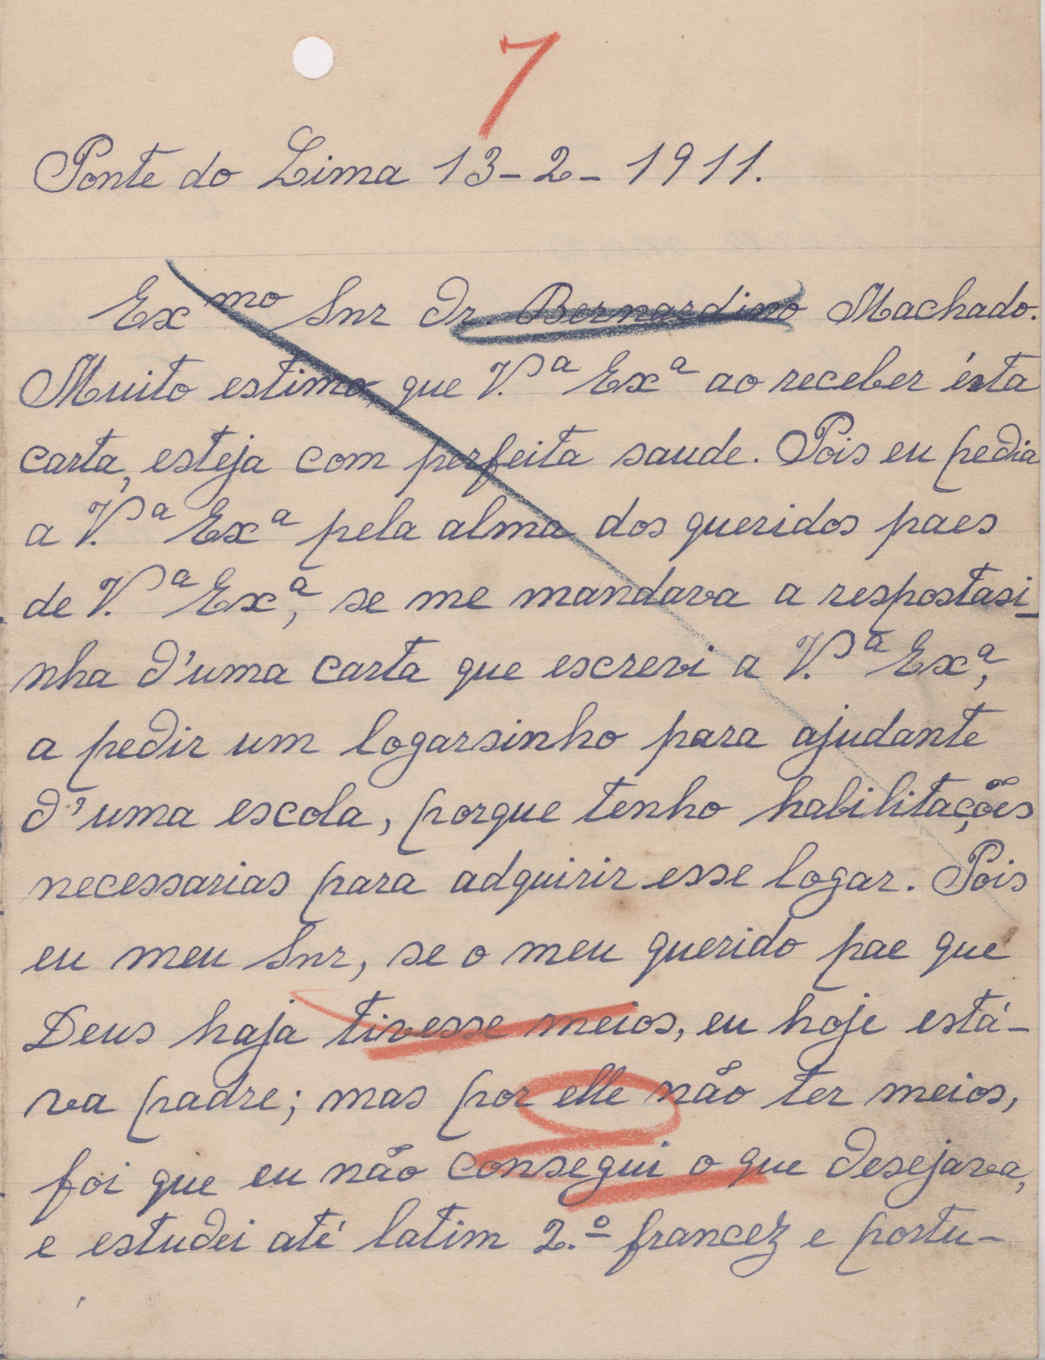 7
Ponte do Lima 13-2-1911.
Exmo Snr Dr. Bernardino Machado.
Muito estimo, que V.ª Exª ao receber ésta
carta, esteja com perfeita saude. Pois eu pedia
a V.ª Exª pela alma dos queridos paes
de V.ª Exª, se me mandava a respostasi-
nha d'uma carta que escrevi a V.ª Exª,
a pedir um logarsinho para ajudante
d'uma escola, porque tenho habilitações
necessarias para adquirir esse logar. Pois
eu meu Snr, se o meu querido pae que
Deus haja tivesse meios, eu hoje está-
va padre; mas por elle não ter meios,
foi que eu não consegui o que desejava,
e estudei até latim 2.º francez e portu-